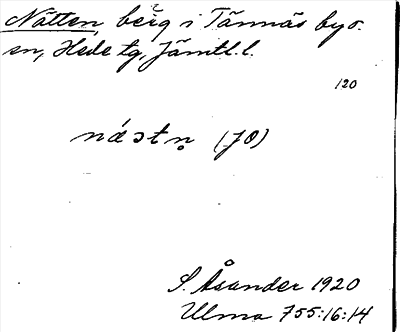 Nätten, berg i Tännäs byo.
sn, Hede tg, Jämtl. l.
120
nάɔtn̥ (JO)
S. Åsander 1920
Ulma 755:16:14